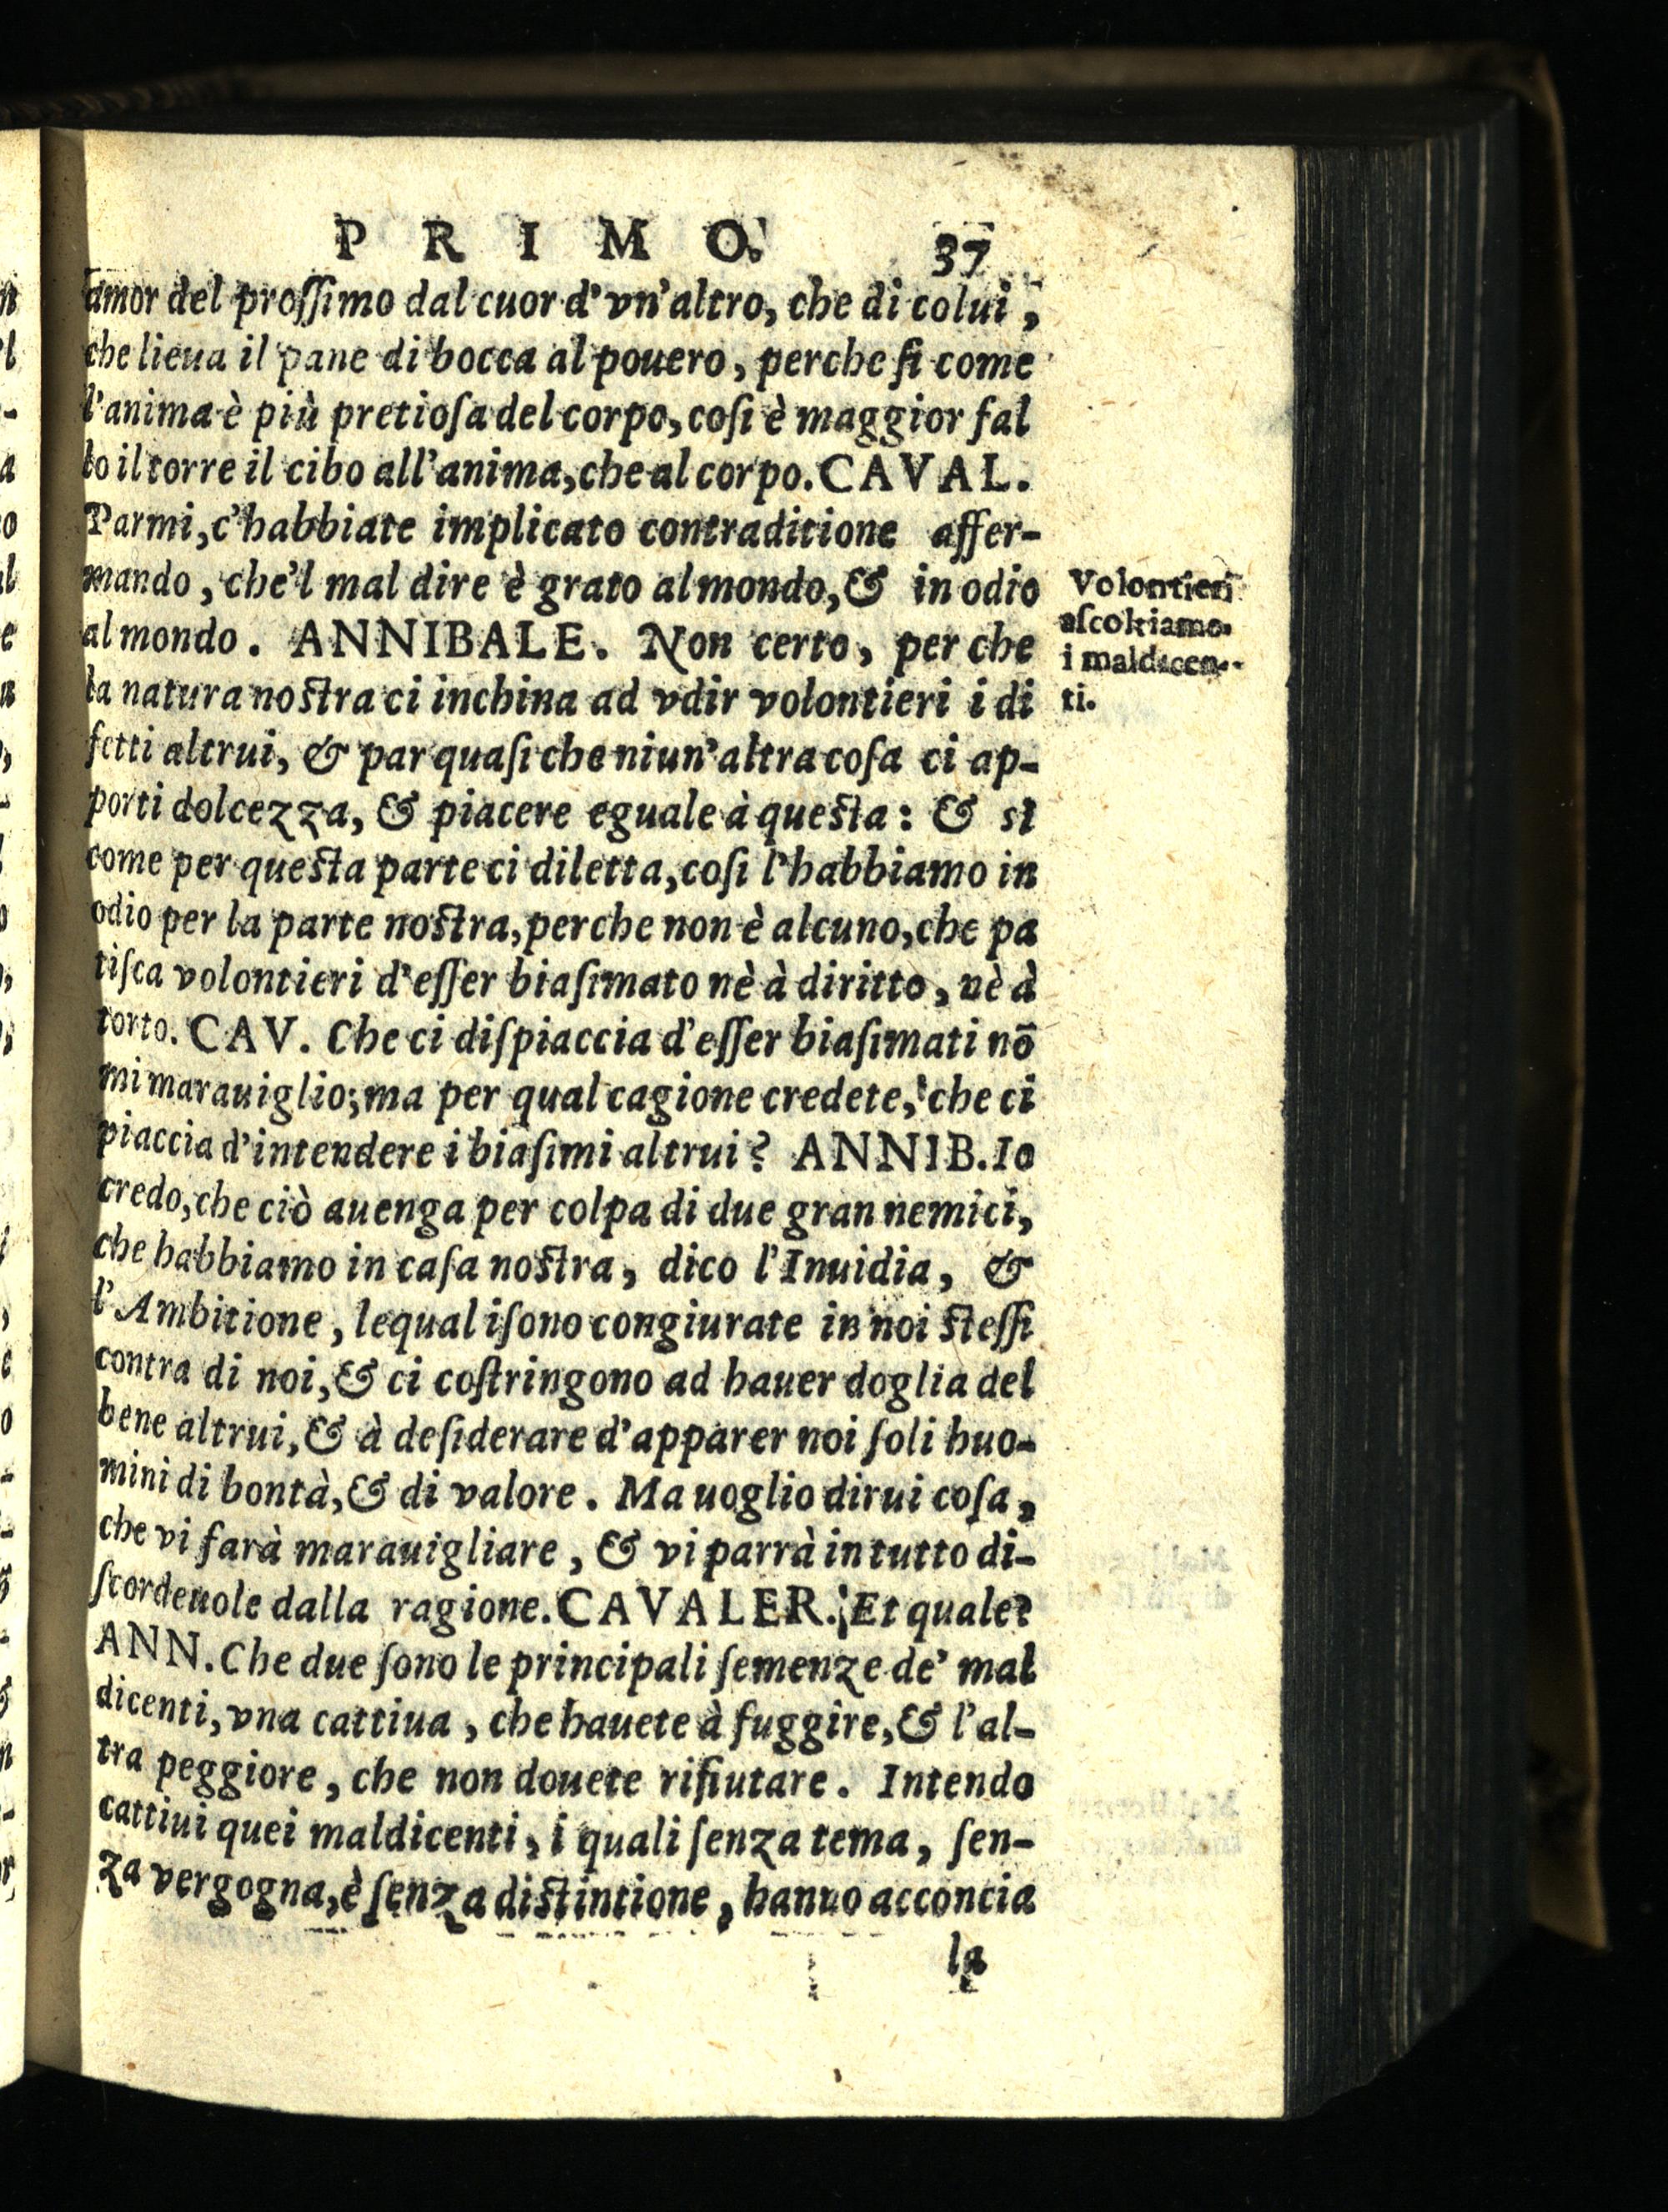 PRIMO. 37
amor del proſſimo dal cuor d'vn'altro, che di colui,
che lieua il pane di bocca al pouero, perche ſi come
l'anima è più pretioſa del corpo, coſi è maggior fal
lo il torre il cibo all'anima, che al corpo. CAVAL.
Parmi, c'habbiate implicato contraditione affer-
mando, che'l mal dire è grato al mondo, & in odio
al mondo. ANNIBALE. Non certo, per che
la natura noſtra ci inchina ad vdir volontieri i di
fetti altrui, & par quaſi che niun'altra coſa ci ap-
porti dolcezza, & piacere eguale à queſta: & si
come per queſta parte ci diletta, coſi l'habbiamo in
odio per la parte noſtra, perche non è alcuno, che pa
tiſca volontieri d'eſſer biaſimato nè à diritto, nè à
torto. CAV. Che ci diſpiaccia d'eſſer biaſimati nō
mi marauiglio; ma per qual cagione credete, che ci
piaccia d'intendere i biaſimi altrui? ANNIB. Io
credo, che ciò auenga per colpa di due gran nemici,
che habbiamo in caſa noſtra, dico l'Inuidia, &
l'Ambitione, lequal iſono congiurate in noi ſteſſi
contra di noi, & ci coſtringono ad hauer doglia del
bene altrui, & à deſiderare d'apparer noi ſoli huo-
mini di bontà, & di valore. Ma uoglio dirui coſa,
che vi farà marauigliare, & vi parrà in tutto di-
ſcordeuole dalla ragione. CAVALER. Et quale?
ANN. Che due ſono le principali ſemenze de' mal
dicenti, vna cattiua, che hauete à fuggire, & l'al-
tra peggiore, che non douete rifiutare. Intendo
cattiui quei maldicenti, i quali ſenza tema, ſen-
za vergogna, è ſenza diſtintione, hanno acconcia
la
Volontieri
aſcoltiamo
i maldicen-
ti.